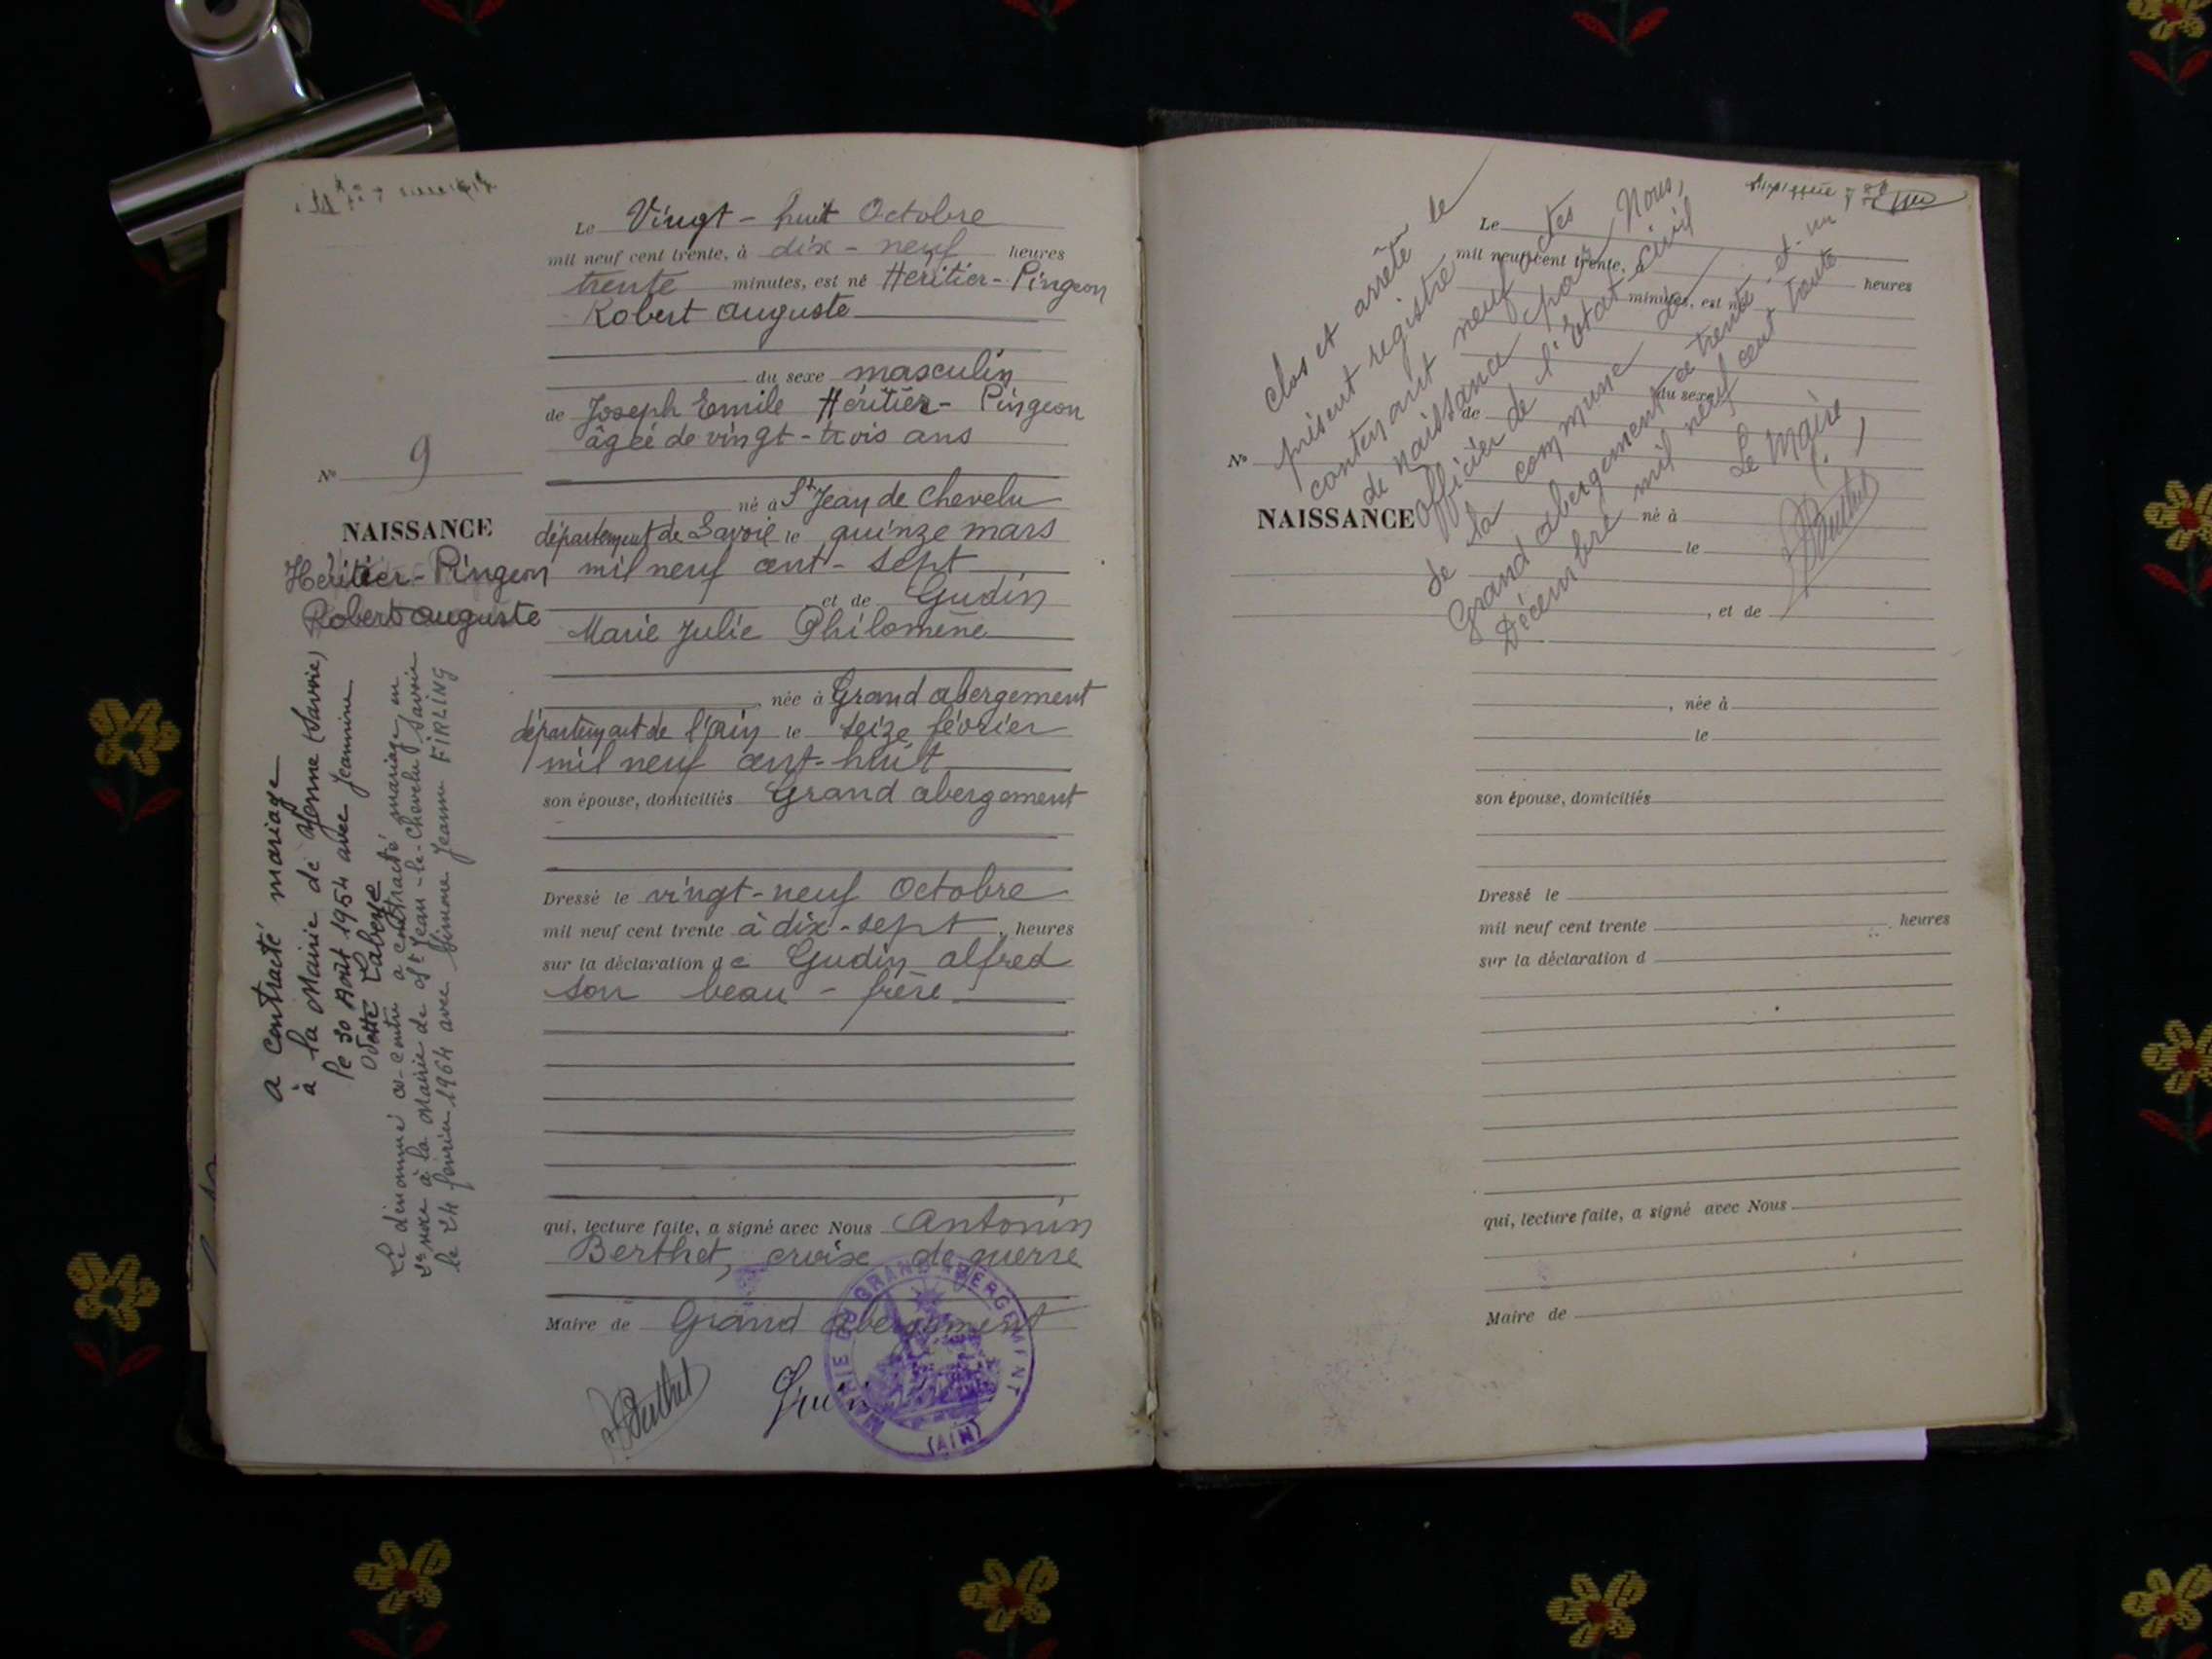 Le Vingt-huit Octobre
mil neuf cent trente, à dix-neuf heures
trente minutes, est né Heritier-Pingeon
Robert auguste
du sexe masculin
de Joseph Emile Héritier-Pingeon
âgeé de vingt-trois ans
né à St Jean de Chevelu
département de Savoie le quinze mars
mil neuf cent-sept
et de Gudin
Marie Julie Philomène
née à Grand abergement
département de l'ain le seize février
mil neuf cent-huit
son épouse, domiciliés Grand abergement
Dressé le vingt-neuf Octobre
mil neuf cent trente à dix-sept, heures
sur la déclaration de Gudin alfred
son beau-frère
qui, lecture faite, a signé avec Nous Antonin
Berthet, croix de guerre
Maire de Grand abergement
Berthet
MAIRIE DU GRAND ABERGEMENT
(AIN)
No 9
NAISSANCE
Heritier-Pingeon
Robert auguste
a contracté mariage
à la Mairie de Yenne (Savoie)
le 30 Août 1954 avec Jeannine
Odette
Le dénommé ci-contre a contracté mariage en
à la Mairie de St Jean-de-Chevelu Savoie
le 24 février 1964 avec Simone Jeanne FIRLING
clos et arrêté le
présent registre
contenant neuf actes
de naissance par Nous,
officier de l'Etat Civil
de la commune de
Grand abergement ce trente-et-un
Décembre mil neuf cent trente
Le Maire,
Berthet
Le
mil neuf cent trente, à
heures
minutes, est né
du sexe
de
No
NAISSANCE
né à
le
, et de
, née à
le
son épouse, domiciliés
Dressé le
mil neuf cent trente heures
sur la déclaration d
qui, lecture faite, a signé avec Nous
Maire de